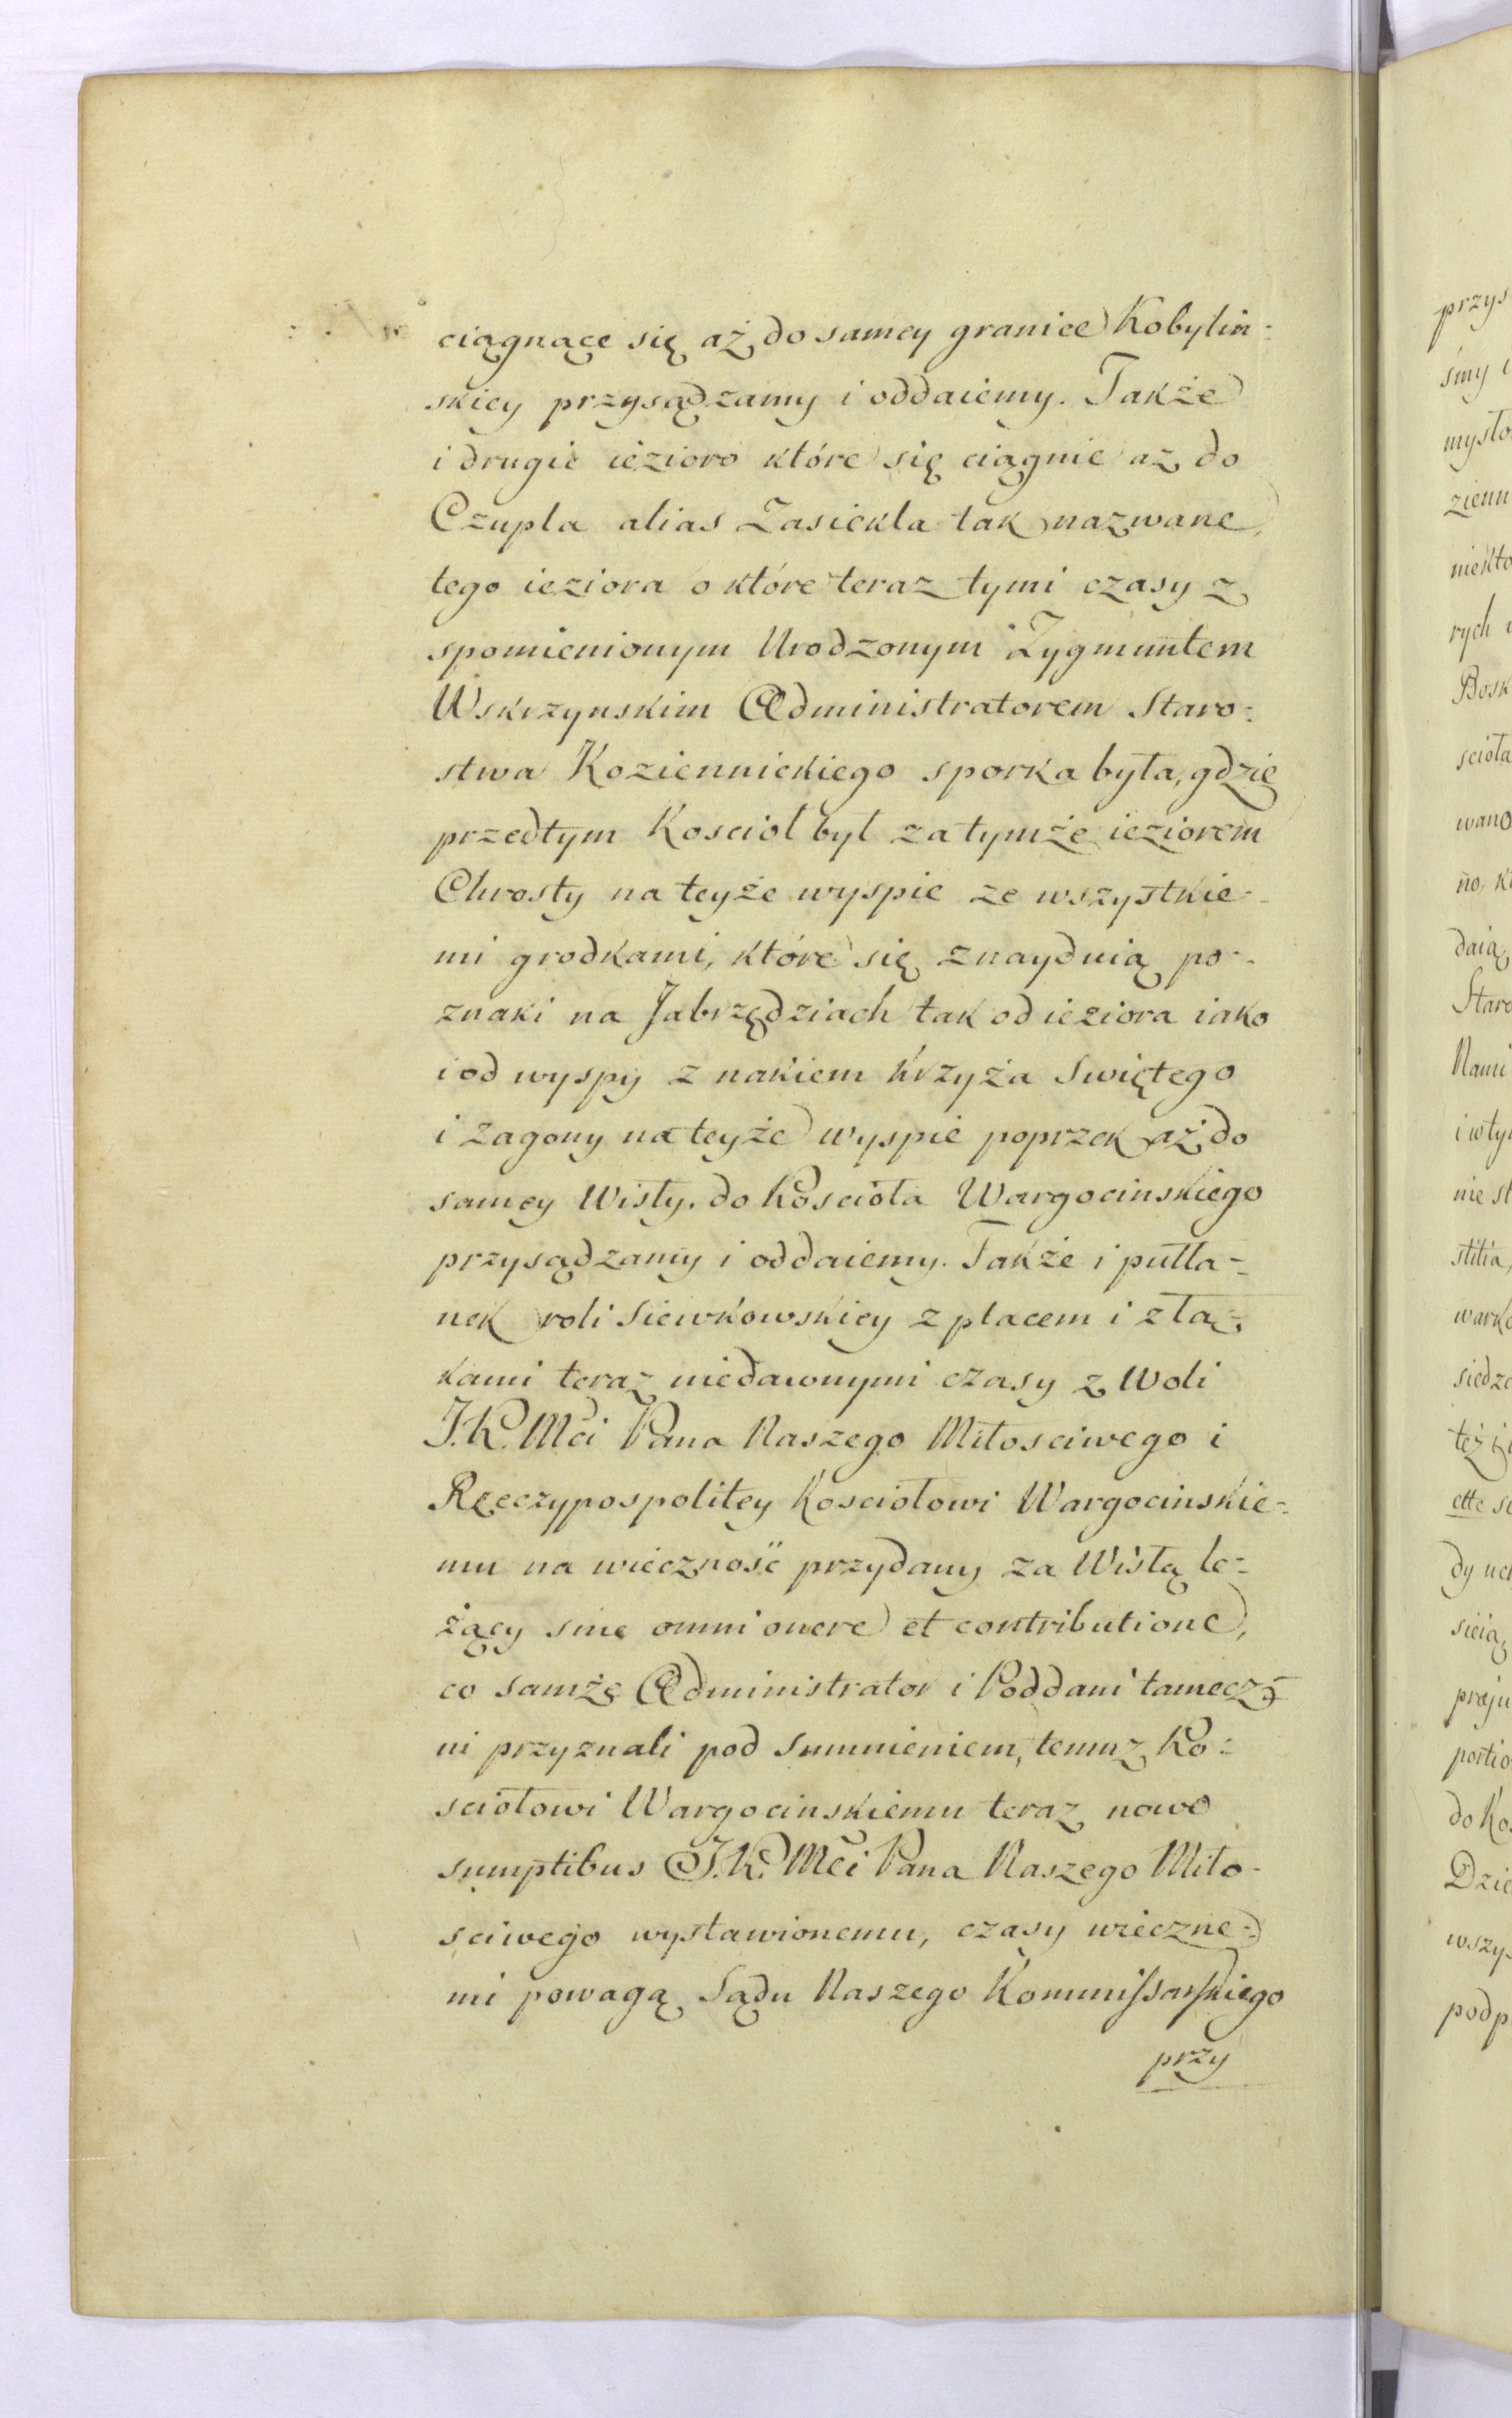 ciągnące się aż do samey granice Kobylin-
skiey przysądzamy i oddaiemy. Także
i drugie iezioro które się ciągnie aż do
Czupla alias Zasiekla tak nazwane,
tego ieziora o które teraz tymi czasy z
spomienionym Urodzonym Zygmuntem
Wskrzynskim Administratorem Staro-
stwa Koziennickiego sporka była, gdzie
przedtym Kosciol byl za tymże ieziorem
Chrosty na teyże wyspie ze wszystkie-
mi grodkami, które się znayduią po-
znaki na Jabrzędziach tak od ieziora iako
i od wyspy znakiem Krzyża Swiętego
i zagony na teyże wyspie poprzek aż do
samey Wisły. do Kosciola Wargocinskiego
przysądzamy i oddaiemy. Także i pułła-
nek roli Siewkowskiey z placem i z łą-
kami teraz niedawnymi czasy z Woli
J.K. Mci Pana Naszego Miłosciwego i
Rzeczypospolitey Kosciołowi Wargocinskie-
mu na wieczność przydany za Wisłą le-
żący sine omni onere et contributione,
co samże Administrator i Poddani tamecz-
ni przyznali pod Summieniem, temuz Ko-
sciołowi Wargocinskiemu teraz nowo
sumptibus J.K. Mci Pana Naszego Miło-
sciwego wystawionemu, czasy wieczne-
mi powagą Sądu Naszego Kommissarskiego
przy
przys
śmy
mysło
zienn
niekto
rych
Bosk
scioła
wano
no,
daią
Staro
Nami
i wty
nie st
stitia,
wark
siedze
też i
ette
dy
sieią
praju
portio
do Ko
Dzie
wszy
podp